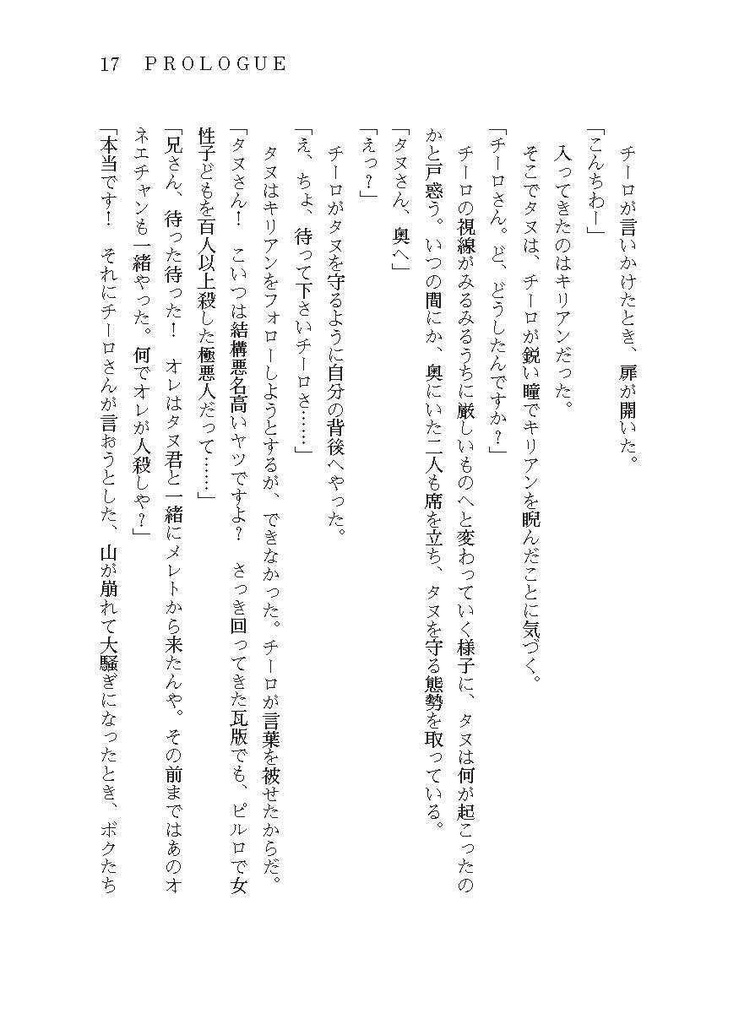 17　PROLOGUE
　チーロが言いかけたとき、扉が開いた。
「こんちわー」
　入ってきたのはキリアンだった。
　そこでタヌは、チーロが鋭い瞳でキリアンを睨んだことに気づく。
「チーロさん。ど、どうしたんですか？」
　チーロの視線がみるみるうちに厳しいものへと変わっていく様子に、タヌは何が起こったの
かと戸惑う。いつの間にか、奥にいた二人も席を立ち、タヌを守る態勢を取っている。
「タヌさん、奥へ」
「えっ？」
　チーロがタヌを守るように自分の背後へやった。
「え、ちょ、待って下さいチーロさ……」
　タヌはキリアンをフォローしようとするが、できなかった。チーロが言葉を被せたからだ。
「タヌさん！　こいつは結構悪名高いヤツですよ？　さっき回ってきた瓦版でも、ピルロで女
性子どもを百人以上殺した極悪人だって……」
「兄さん、待った待った！　オレはタヌ君と一緒にメレトから来たんや。その前まではあのオ
ネエチャンも一緒やった。何でオレが人殺しや？」
「本当です！　それにチーロさんが言おうとした、山が崩れて大騒ぎになったとき、ボクたち